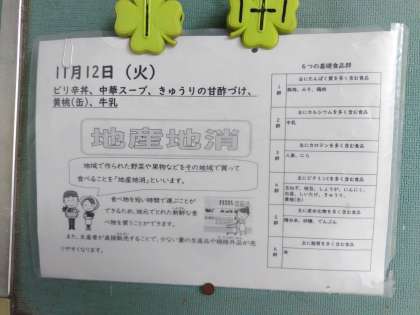 11月12日（火）
ピリ辛丼、中華スープ、きゅうりの甘酢づけ、
黄桃(缶)、牛乳
地産地消
地域で作られた野菜や果物などをその地域で買って
食べることを「地産地消」といいます。
食べ物を短い時間で運ぶことが
できるため、地元でとれた新鮮な食
べ物を買うことができます。
また、生産者が直接販売することで、少ない量の生産品や規格外品が売
りやすくなります。
６つの基礎食品群
1群
主にたんぱく質を多く含む食品
豚肉、みそ、鶏肉
2群
主にカルシウムを多く含む食品
牛乳
3群
主にカロテンを多く含む食品
人参、にら
4群
主にビタミンCを多く含む食品
玉ねぎ、しょうが、にんにく、
白菜、しいたけ、きゅうり、
黄桃(缶)
5群
主に炭水化物を多く含む食品
精白米、砂糖、でんぷん
6群
主に脂質を多く含む食品
油